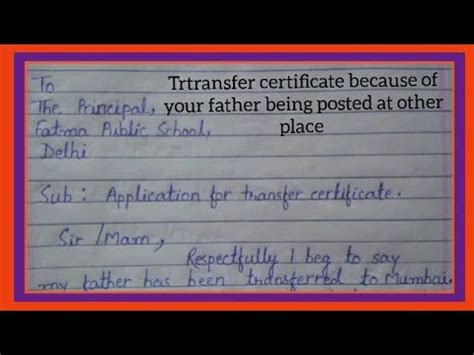 Trtransfer certificate because of
your father being posted at other
place
To
The Principal,
Fatma Public School,
Delhi
Sub : Application for transfer certificate.
Sir / Mam,
Respectfully I beg to say
my father has been transferred to Mumbai.